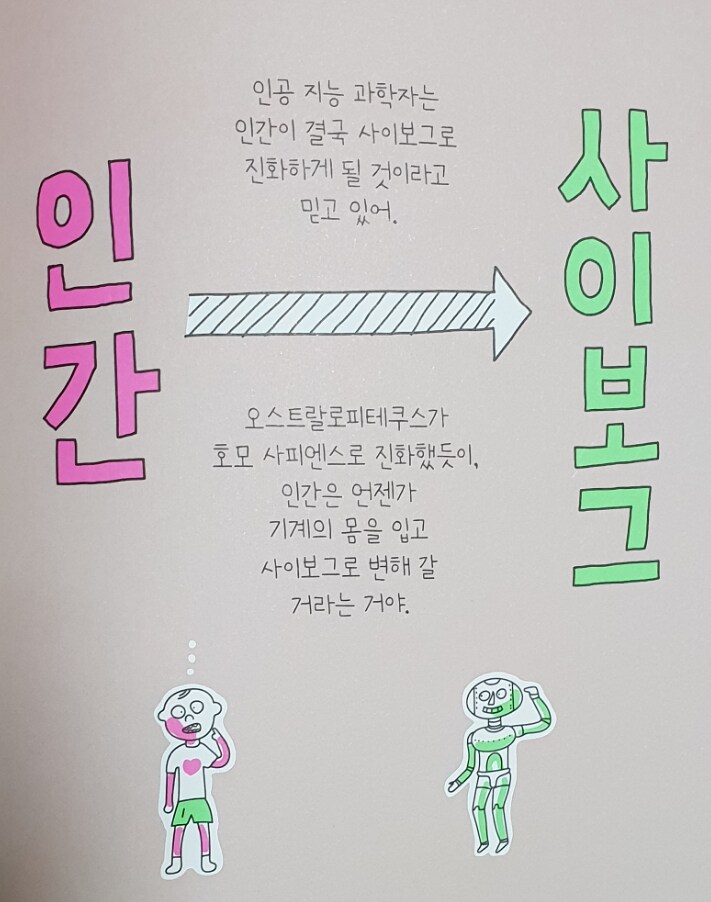 인간
인공 지능 과학자는
인간이 결국 사이보그로
진화하게 될 것이라고
믿고 있어.
사이보그
오스트랄로피테쿠스가
호모 사피엔스로 진화했듯이,
인간은 언젠가
기계의 몸을 입고
사이보그로 변해 갈
거라는 거야.